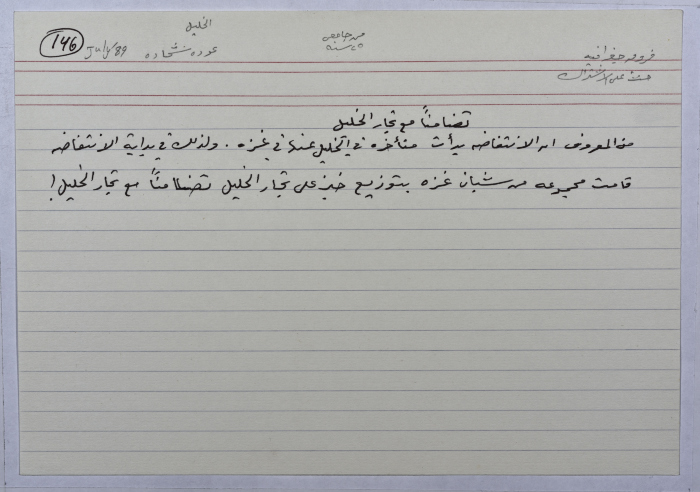 الخليل
146
July/89
عوده شحاده
من جامعي
٢٥ سنه
فروق جغرافيه
حث على الاشتراك
تضامناً مع تجار الخليل
من المعروف ان الانتفاضه بدأت متأخره في الخليل عنها في غزه. ولذلك في بداية الانتفاضه
قامت مجموعه من شبان غزه بتوزيع خبز على تجار الخليل تضامناً مع تجار الخليل!